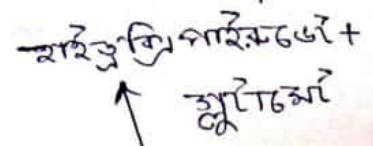 হাইড্রক্সি পাইরুভেট +
গ্লুটামেট